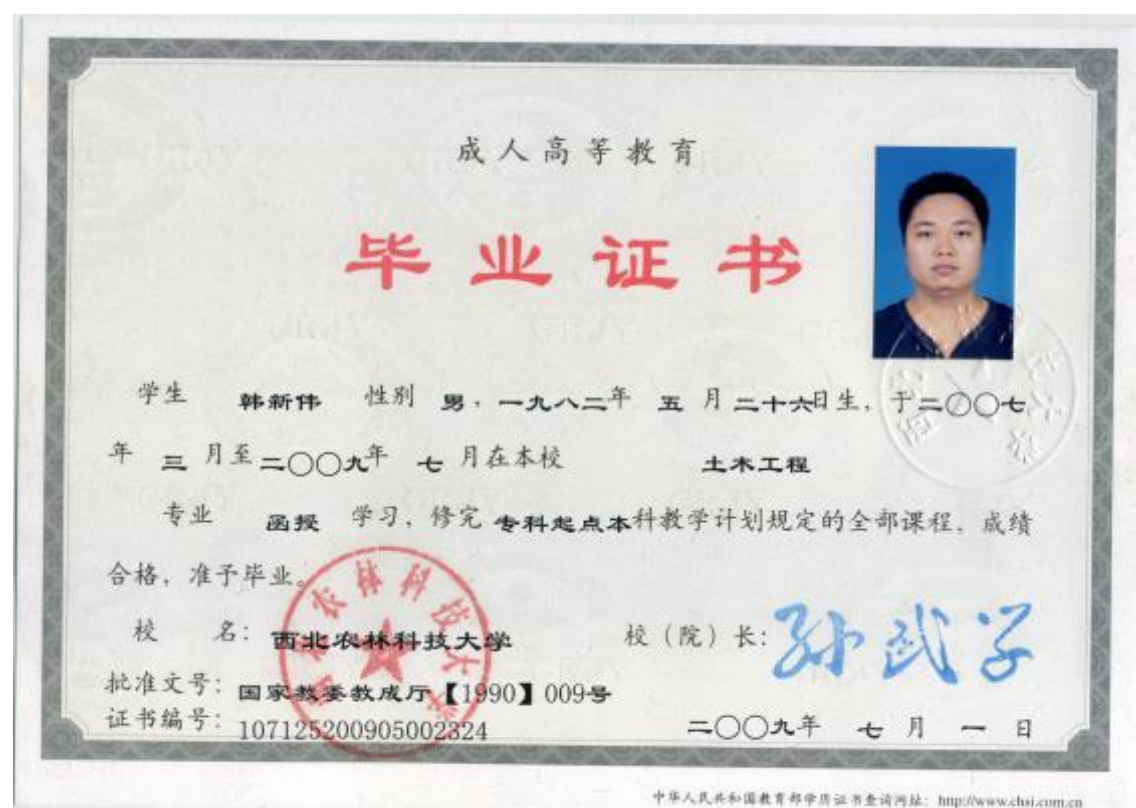 成人高等教育
毕业证书
学生 韩新伟 性别 男，一九八二年 五 月二十六日生，于二〇〇七
年 三 月至二〇〇九年 七 月在本校 土木工程
专业 函授 学习，修完 专科起点本科教学计划规定的全部课程，成绩
合格，准予毕业。
校 名：西北农林科技大学
校（院）长：孙武学
批准文号：国家教委教成厅【1990】009号
证书编号：107125200905002324
二〇〇九年 七 月 一 日
西北农林科技大学
中华人民共和国教育部学历证书查询网址：http://www.chsi.com.cn